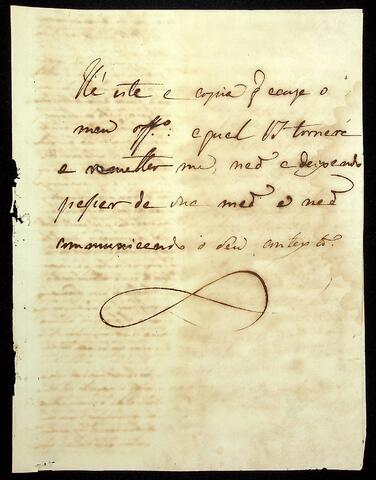 Hé este e copia p̃ ecuze o
meu off.º: e qual V. tornerá
e remetter me, não e deixando
passar de sua mão e não
communicando o seu contexto.